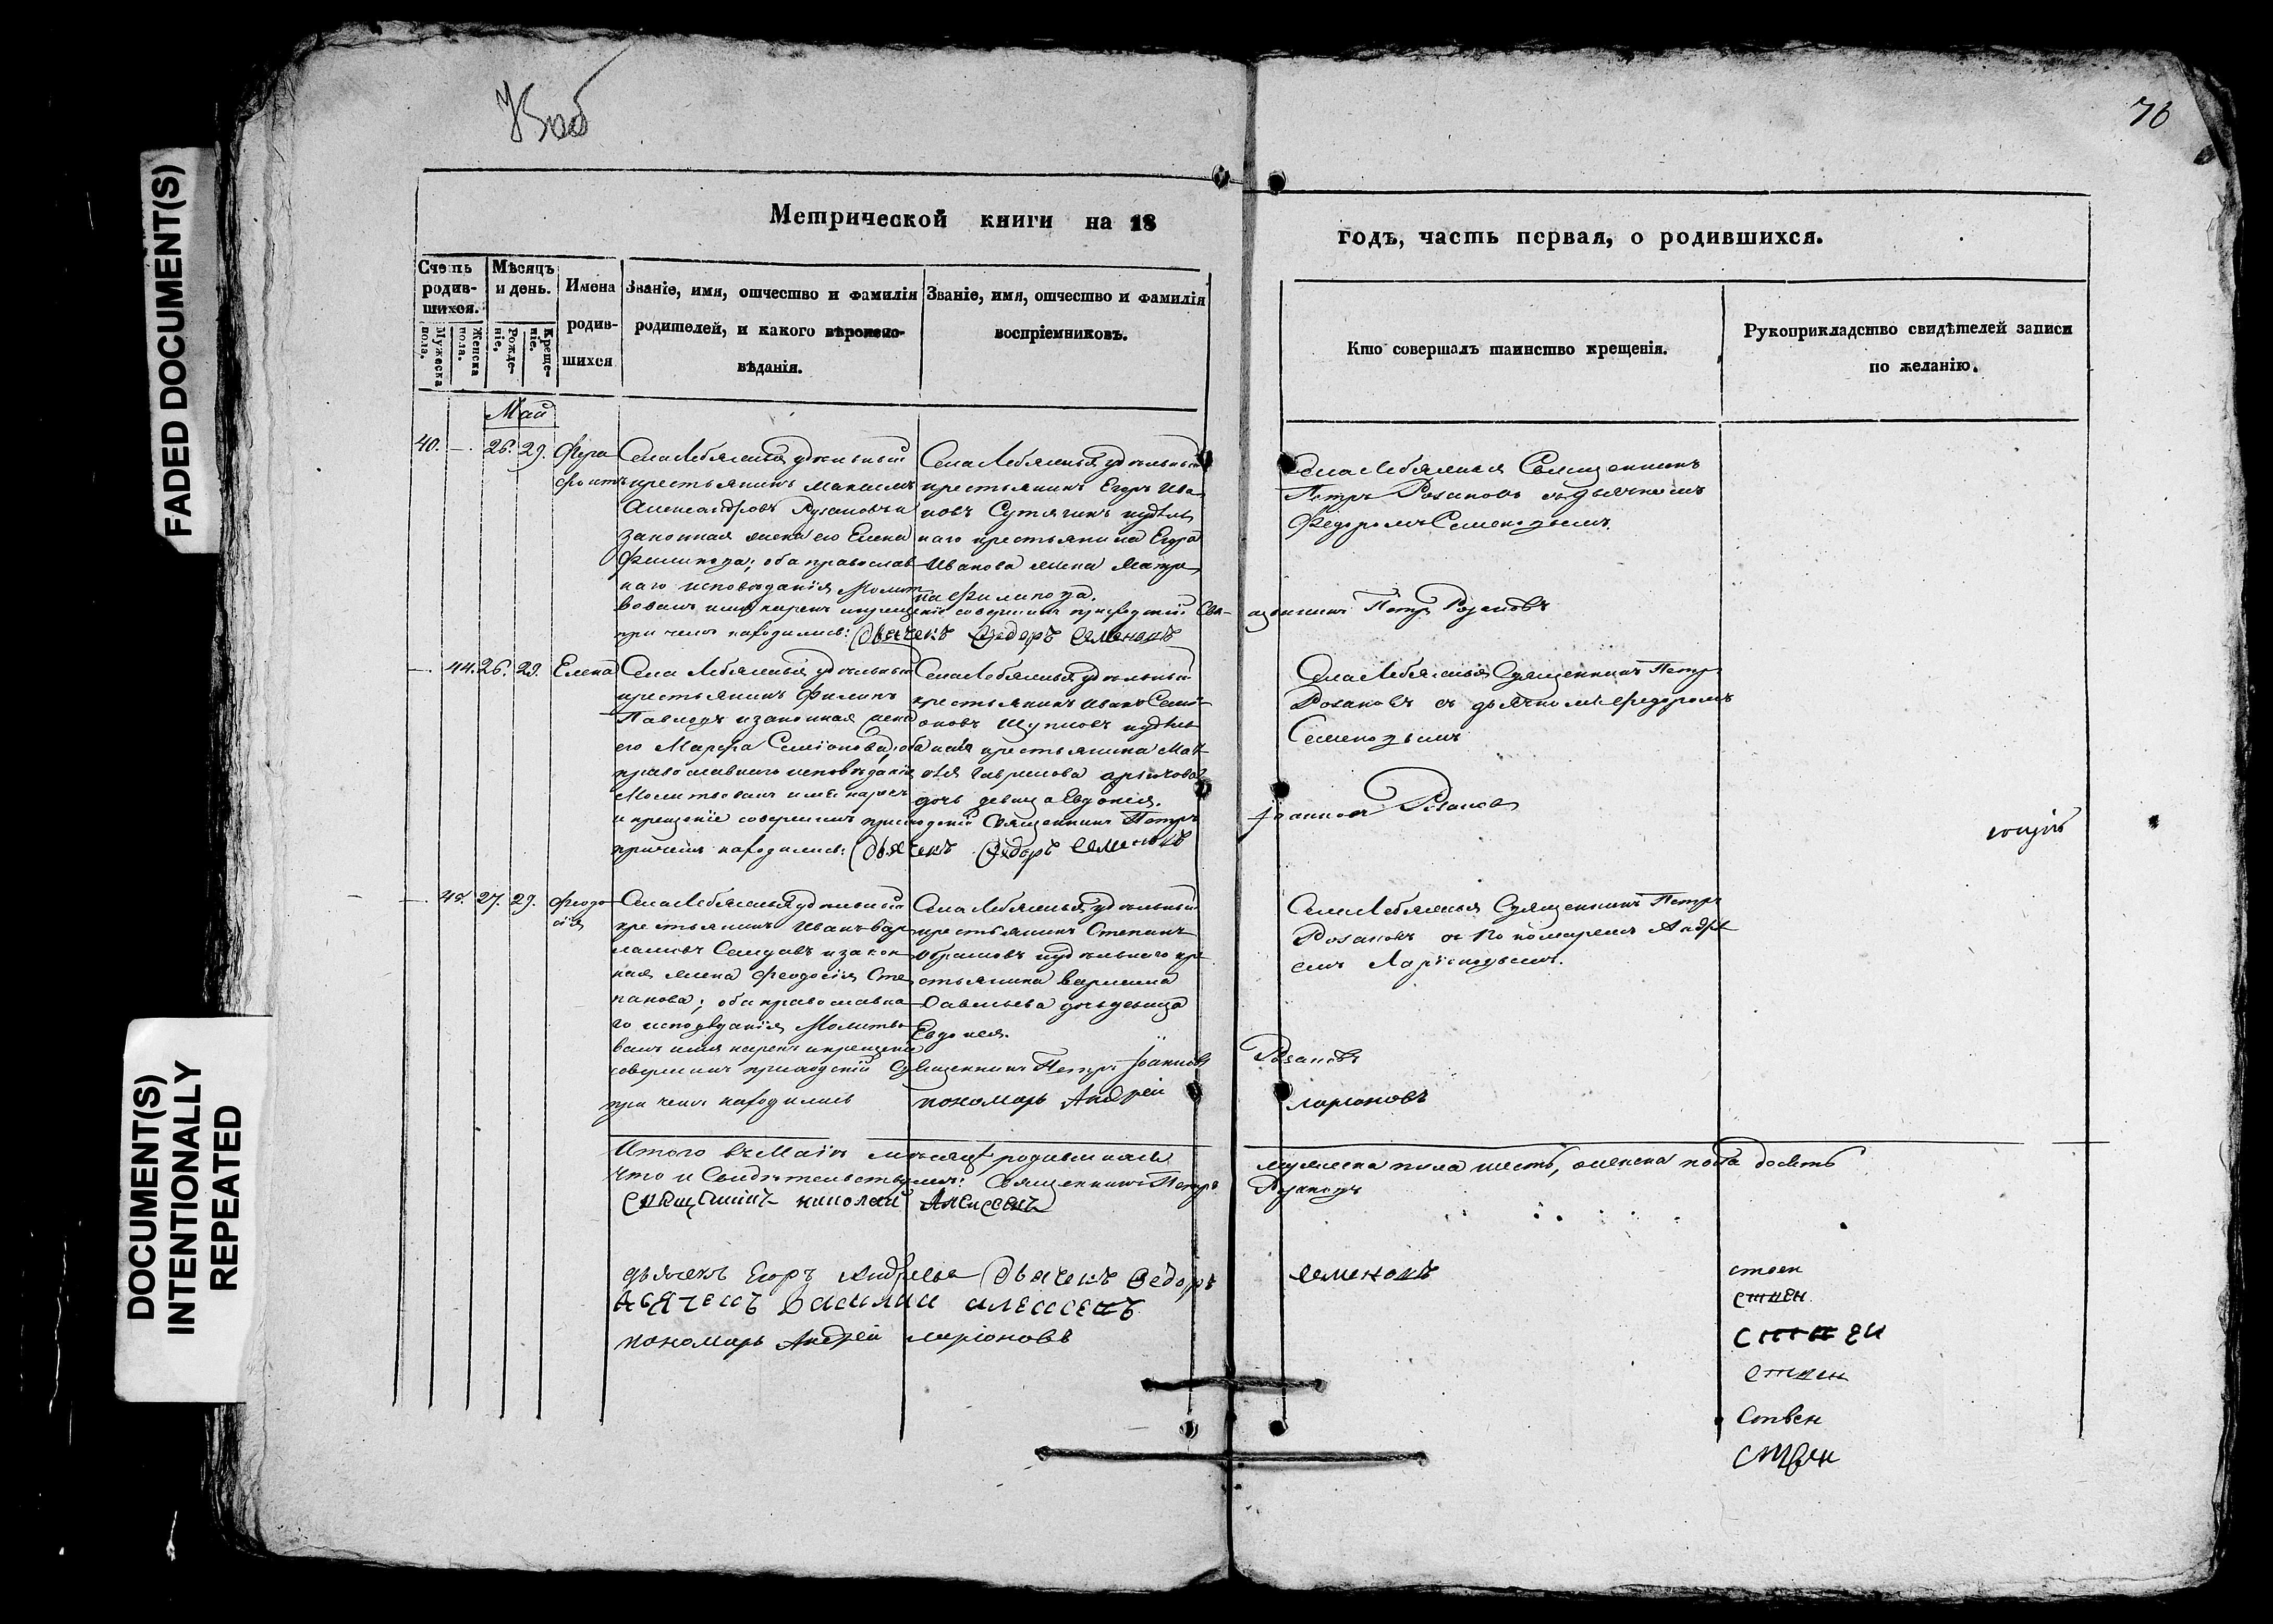 FADED DOCUMENT(S)
DOCUMENT(S)
INTENTIONALLY
REPEATED
76
Метрической книги на 18
годъ, часть первая, о родившихся.
Счетъ родив-шихся.
Мужеска пола.
Женска пола.
Мѣсяцъ и день.
Рожде-ніе,
Креще-ніе.
Имена
родив-
шихся
Званіе, имя, отчество и фамилія
родителей, и какого вѣроиспо-
вѣданія.
Званіе, имя, отчество и фамилія
воспріемниковъ.
Кто совершалъ таинство крещенія.
Рукоприкладство свидѣтелей записи
по желанію.
Май
40. — 26. 29.
Села Лебяжья удѣльный
крестьянинъ Максимъ
Александровъ
законная жена его Елена
Филипова; оба православ
наго исповѣданія Молит
вовалъ имя нарекъ и крещеніе совершилъ приходскій Свя-
щенникъ Петръ Розановъ
при чемъ находились: Дьячекъ Федоръ Семеновъ
Села Лебяжья удѣльный
крестьянинъ Егоръ Ива
новъ Сутягинъ и удѣль
наго крестьянина Егора
Иванова жена Матре
на Филипова.
Села Лебяжья Священникъ
Петръ Розановъ съ дьячкомъ
Федоромъ Семеновымъ.
— 44. 26. 29. Елена
Села Лебяжья удѣльный
крестьянинъ Филипъ
Павловъ и законная жена
его Марфа Семіонова, оба
православнаго исповѣданія
Молитвовалъ имя нарекъ
и крещеніе совершилъ приходскій Священникъ Петръ
Іоанновъ Розановъ
причемъ находились: Дьячекъ Федоръ Семеновъ
Села Лебяжья удѣльный
крестьянинъ Иванъ Семі
оновъ и удѣль
ная крестьянина Мат
вѣя Гаврилова
дочь девица Евдокія.
Села Лебяжья Священникъ Петръ
Розановъ съ дьячкомъ Федоромъ
Семеновымъ
— 45. 27. 29. Феодо
сія
Села Лебяжья удѣльный
крестьянинъ Иванъ Вар
ламовъ и закон
ная жена Феодосія Сте
панова; оба православна
го исповѣданія Молитво
валъ имя нарекъ и крещеніе
совершилъ приходскій Священникъ Петръ Іоанновъ
Розановъ
при чемъ находились пономарь Андрей
Ларіоновъ
Села Лебяжья удѣльный
крестьянинъ Степанъ
и удѣльнаго кре
стьянина
Савельева дочь девица
Евдокея.
Села Лебяжья Священникъ Петръ
Розановъ съ Пономаремъ Андре
емъ Ларіоновымъ.
Итого въ Маіѣ мѣсяцѣ родившихся
мужеска пола шесть, женска пола девять
что и Свидѣтельствуемъ: Священникъ Петръ
Розановъ
Священникъ николай Алексеевъ
дьячекъ Егоръ Андреевъ Дьячекъ Федоръ
Семеновъ
дьячекъ Василий алексеевъ
пономарь Андрей ларіоновъ